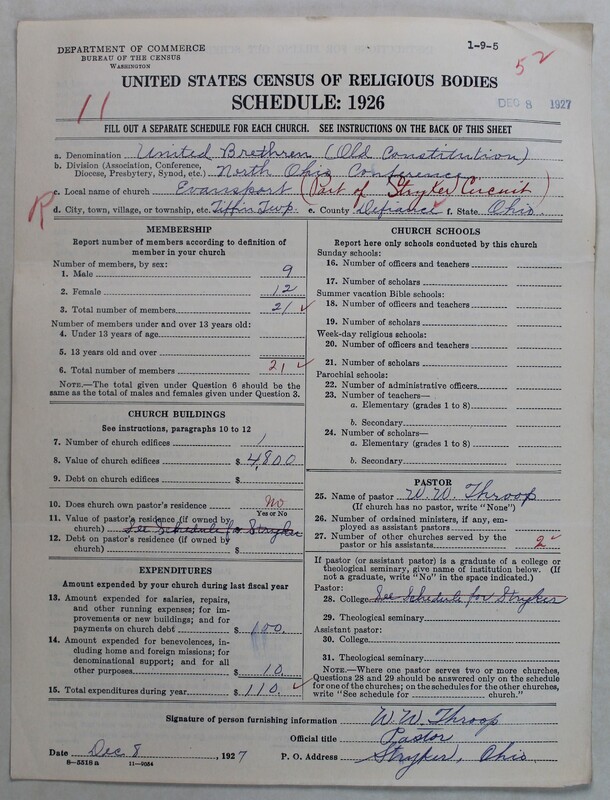 DEPARTMENT OF COMMERCE
BUREAU OF THE CENSUS
WASHINGTON
1-9-5
52
UNITED STATES CENSUS OF RELIGIOUS BODIES
11
SCHEDULE: 1926
DEC 8 1927
FILL OUT A SEPARATE SCHEDULE FOR EACH CHURCH. SEE INSTRUCTIONS ON THE BACK OF THIS SHEET
a. Denomination United Brethren (Old Constitution)
b. Division (Association, Conference, Diocese, Presbytery, Synod, etc.) North Ohio Conference
c. Local name of church Evansport (Part of Stryker Circuit)
d. City, town, village, or township, etc. Tiffin Twp. e. County Defiance f. State Ohio.
MEMBERSHIP
Report number of members according to definition of
member in your church
Number of members, by sex:
1. Male 9
2. Female 12
3. Total number of members 21 ✓
Number of members under and over 13 years old:
4. Under 13 years of age
5. 13 years old and over
6. Total number of members 21 ✓
NOTE.—The total given under Question 6 should be
the same as the total of males and females given under Question 3.
CHURCH BUILDINGS
See instructions, paragraphs 10 to 12
7. Number of church edifices 1
8. Value of church edifices $ 4,800
9. Debt on church edifices $
10. Does church own pastor's residence No
Yes or No
11. Value of pastor's residence (if owned by
church) See Schedule for Stryker
12. Debt on pastor's residence (if owned by
church) $
EXPENDITURES
Amount expended by your church during last fiscal year
13. Amount expended for salaries, repairs,
and other running expenses; for im-
provements or new buildings; and for
payments on church debt $ 100.
14. Amount expended for benevolences, in-
cluding home and foreign missions; for
denominational support; and for all
other purposes $ 10.
15. Total expenditures during year $ 110. ✓
CHURCH SCHOOLS
Report here only schools conducted by this church
Sunday schools:
16. Number of officers and teachers
17. Number of scholars
Summer vacation Bible schools:
18. Number of officers and teachers
19. Number of scholars
Week-day religious schools:
20. Number of officers and teachers
21. Number of scholars
Parochial schools:
22. Number of administrative officers
23. Number of teachers—
a. Elementary (grades 1 to 8)
b. Secondary
24. Number of scholars—
a. Elementary (grades 1 to 8)
b. Secondary
PASTOR
25. Name of pastor W. W. Throop
(If church has no pastor, write "None")
26. Number of ordained ministers, if any, em-
ployed as assistant pastors
27. Number of other churches served by the
pastor or his assistants 2 ✓
If pastor (or assistant pastor) is a graduate of a college or
theological seminary, give name of institution below. (If
not a graduate, write "No" in the space indicated.)
Pastor:
28. College See Schedule for Stryker
29. Theological seminary
Assistant pastor:
30. College
31. Theological seminary
NOTE.—Where one pastor serves two or more churches,
Questions 28 and 29 should be answered only on the schedule
for one of the churches; on the schedules for the other churches,
write "See schedule for church."
Signature of person furnishing information W. W. Throop
Official title Pastor
Date Dec. 8, 1927 P. O. Address Stryker, Ohio
8—5518a 11—9054